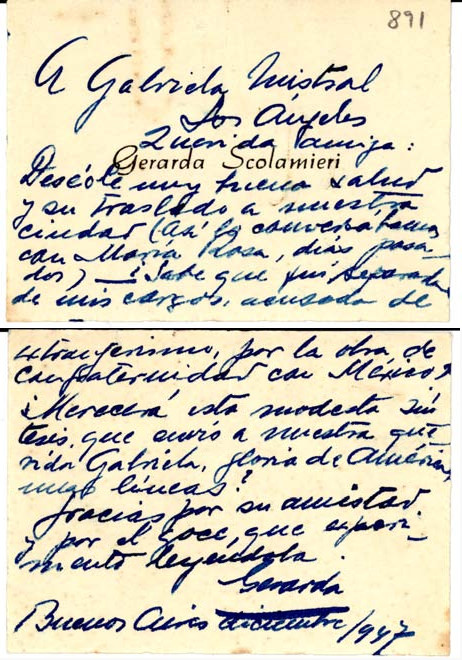 891
A Gabriela Mistral
Los Ángeles
Querida amiga:
Gerarda Scolamieri
Deséole muy buena salud
y su traslado a nuestra
ciudad (Así lo conversábamos
con María Rosa, días pasa-
dos) — ¿Sabe que fuí separada
de mis cargos, acusada de
extranjerismo, por la obra de
confraternidad con México?
¿Merecerá esta modesta sín
tesis, que envío a nuestra que
rida Gabriela, gloria de América,
unas líneas?
Gracias por su amistad
y por el goce, que experi-
mento leyéndola.
Gerarda
Buenos Aires diciembre/947